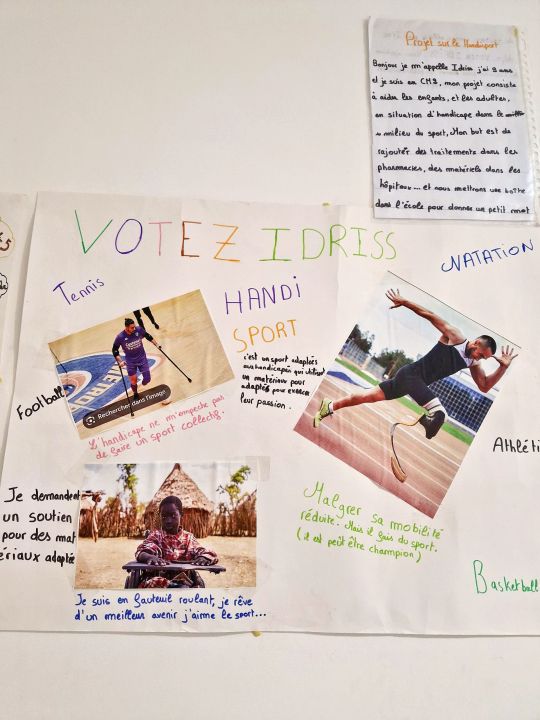 Projet sur le Handisport
Bonjour je m'appelle Idriss j'ai 9 ans
et je suis en CM2, mon projet consiste
à aider les enfants, et les adultes,
en situation d'handicape dans le
milieu du sport, Mon but est de
rajouter des traitements dans les
pharmacies, des matériels dans les
hôpitaux... et nous mettrons une boîte
dans l'école pour donner un petit mot
VOTEZ IDRISS
Tennis
HANDI
SPORT
NATATION
c'est un sport adaptées
aux handicapés qui utilisent
un matériaux pour
adaptés pour exercer
leur passion.
Football
Rechercher dans l'image
L'handicape ne m'empeche pas
de faire un sport collectif.
Athléti
Je demandent
un soutien
pour des mat
ériaux adaptée
Malgrer sa mobilité
réduite. Mais il fais du sport.
(il est peût être champion)
Basketball
Je suis en fauteuil roulant, je rêve
d'un meilleur avenir j'aime le sport...